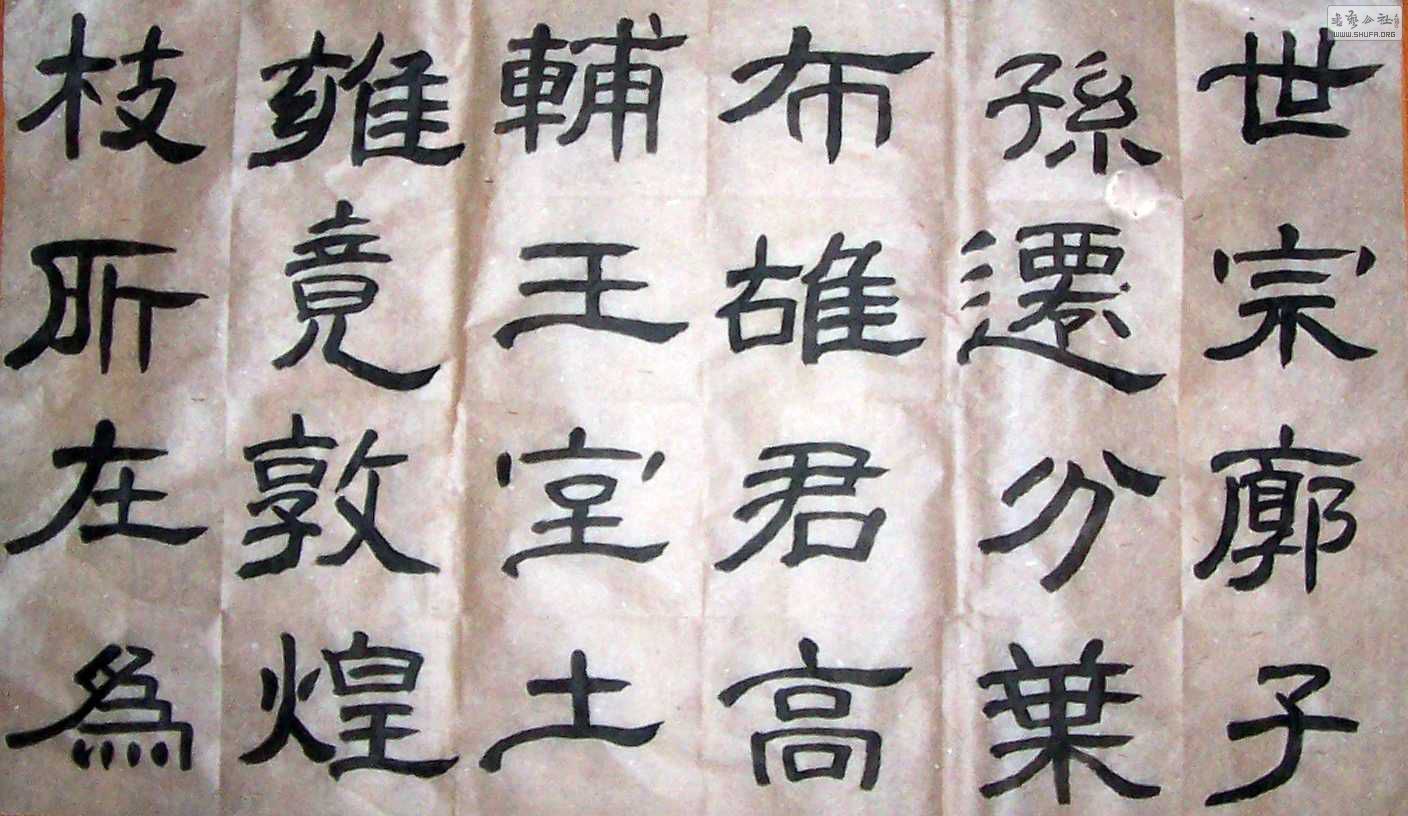 世宗廓子
孫遷分葉
布雄君高
輔王室土
雍竟敦煌
枝所在為
書藝公社
WWW.SHUFA.ORG